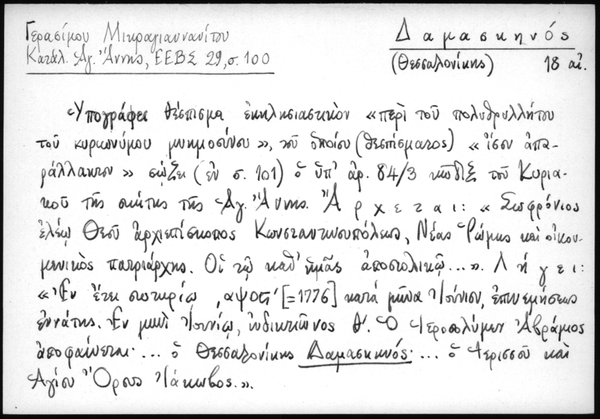 Γερασίμου Μικραγιαννανίτου
Κατάλ. Ἁγ. Ἄννης, ΕΕΒΣ 29, σ. 100
Δαμασκηνός
(Θεσσαλονίκης) 18 αἰ.
Ὑπογράφει θέσπισμα ἐκκλησιαστικὸν «περὶ τοῦ πολυθρυλλήτου
τοῦ κυριωνύμου μνημοσύνου», τοῦ ὁποίου (θεσπίσματος) «ἴσον ἀπα-
ράλλακτον» σῴζει (ἐν σ. 101) ὁ ὑπ' ἀρ. 84/3 κῶδιξ τοῦ Κυρια-
κοῦ τῆς σκήτης τῆς Ἁγ. Ἄννης. Ἄρχεται: «Σωφρόνιος
ἐλέῳ Θεοῦ ἀρχιεπίσκοπος Κωνσταντινουπόλεως, Νέας Ῥώμης καὶ οἰκου-
μενικὸς πατριάρχης. Οἱ τῷ καθ' ἡμᾶς ἀποστολικῷ...». Λήγει:
«Ἐν ἔτει σωτηρίῳ ͵αψοϛʹ [=1776] κατὰ μῆνα Ἰούνιον, ἐπινεμήσεως
ἐννάτης. Ἐν μηνὶ Ἰουνίῳ, ἰνδικτιῶνος θ'. Ὁ Ἱεροσολύμων Ἀβράμιος
ἀποφαίνεται ... ὁ Θεσσαλονίκης Δαμασκηνός ... ὁ Ἱερισσοῦ καὶ
Ἁγίου Ὄρους Ἰάκωβος.».